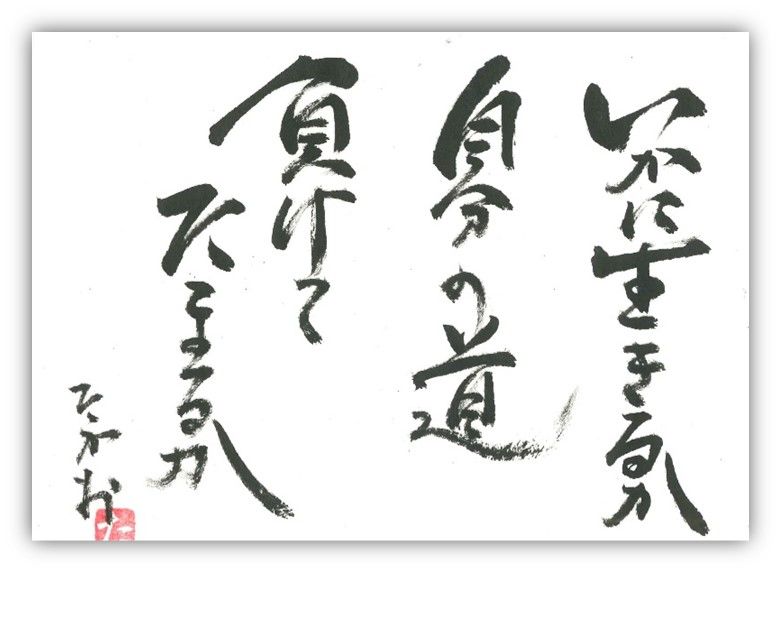 いかに生きるか
自分の道
負けて
たまるか
たかお